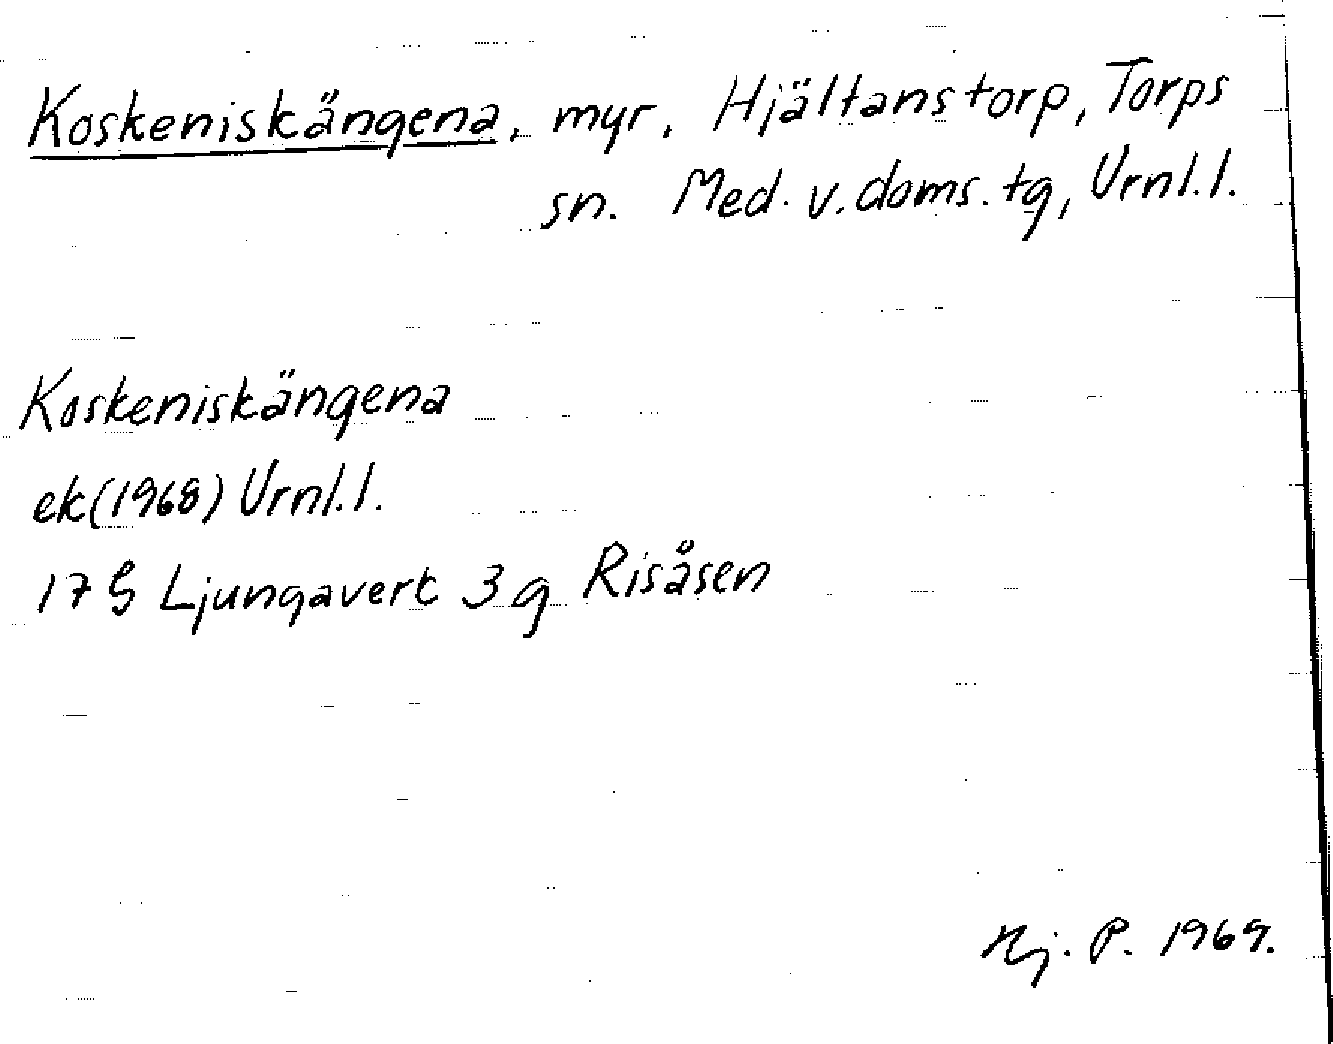 Koskeniskängena, myr, Hjältanstorp, Torps
sn. Med. v. doms. tg, Vrnl.l.
Koskeniskängena
ek(1968) Vrnl.l.
17 G Ljungaverk 3 g Risåsen
Hj. P. 1969.